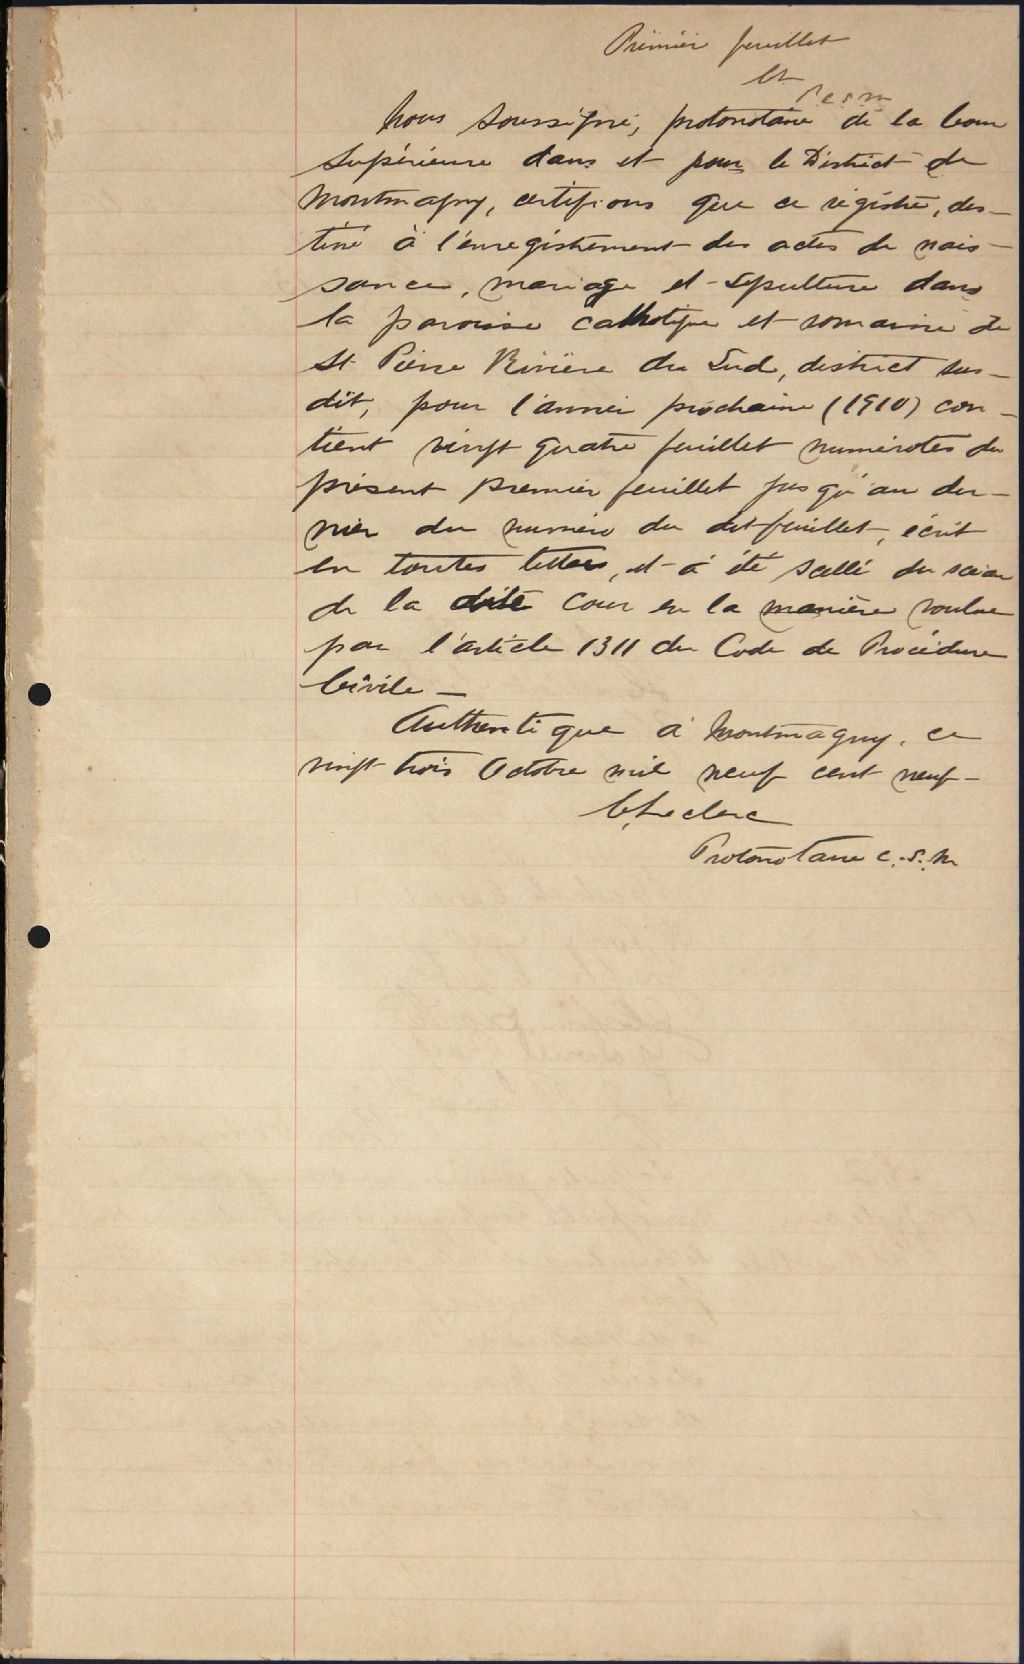 Premier feuillet
P.C.S.M
Nous soussigné, protonotaire de la Cour
Supérieure dans et pour le District de
Montmagny, certifions que ce régistre, des-
tiné à l'enregistrement des actes de nais-
sance, mariage et sépulture dans
la paroisse catholique et romaine de
St Pierre Rivière du Sud, district sus-
dit, pour l'année prochaine (1910) con-
tient vingt quatre feuillet numérotés du
présent premier feuillet jusqu'au der-
nier du numéro du dit feuillet, écrit
en toutes lettres, et a été scellé du sceau
de la dite Cour en la manière voulue
par l'article 1311 du Code de Procédure
Civile -
Authentique à Montmagny, ce
vingt trois Octobre mil neuf cent neuf -
Leclerc
Protonotaire C.S.M